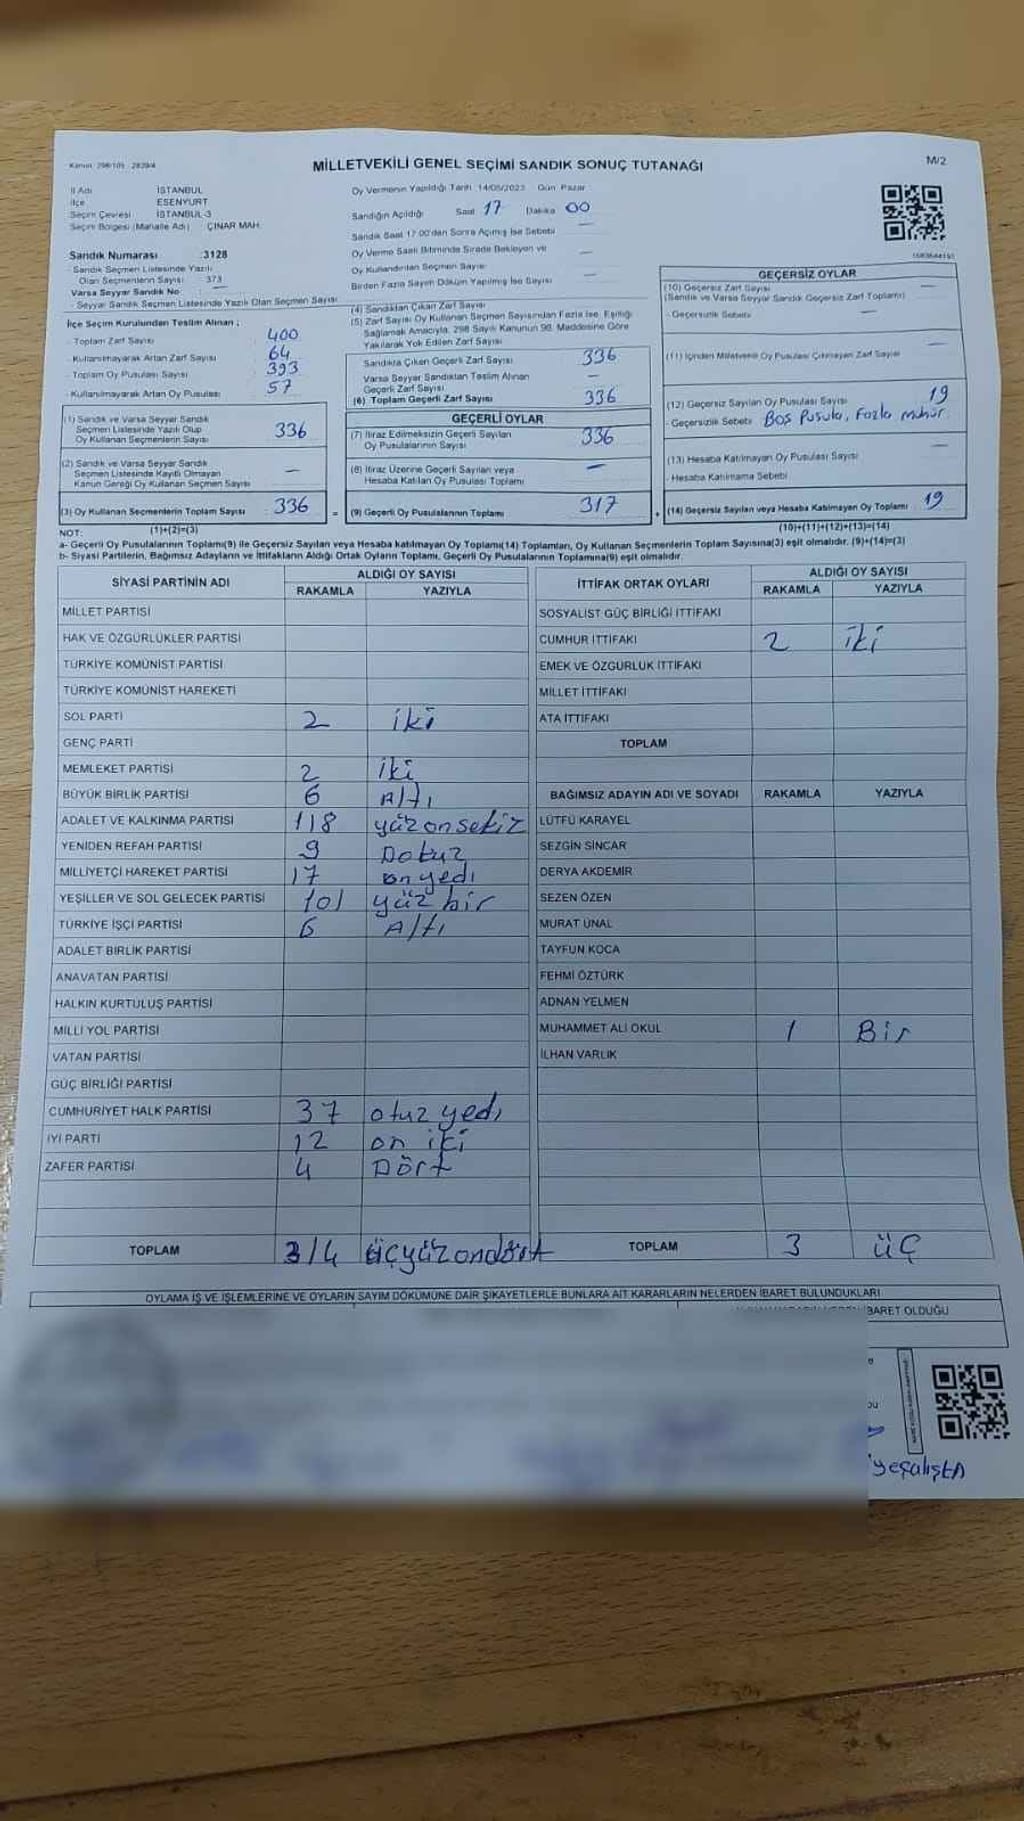 Kanun: 298/105 , 2839/4
MİLLETVEKİLİ GENEL SEÇİMİ SANDIK SONUÇ TUTANAĞI
M/2
İl Adı İSTANBUL
İlçe ESENYURT
Seçim Çevresi İSTANBUL-3
Seçim Bölgesi (Mahalle Adı) ÇINAR MAH.
Sandık Numarası :3128
- Sandık Seçmen Listesinde Yazılı
Olan Seçmenlerin Sayısı : 373
Varsa Seyyar Sandık No : —
- Seyyar Sandık Seçmen Listesinde Yazılı Olan Seçmen Sayısı
İlçe Seçim Kurulundan Teslim Alınan ;
- Toplam Zarf Sayısı 400
- Kullanılmayarak Artan Zarf Sayısı 64
- Toplam Oy Pusulası Sayısı 393
- Kullanılmayarak Artan Oy Pusulası 57
(1) Sandık ve Varsa Seyyar Sandık
Seçmen Listesinde Yazılı Olup
Oy Kullanan Seçmenlerin Sayısı 336
(2) Sandık ve Varsa Seyyar Sandık
Seçmen Listesinde Kayıtlı Olmayan
Kanun Gereği Oy Kullanan Seçmen Sayısı —
(3) Oy Kullanan Seçmenlerin Toplam Sayısı 336
(1)+(2)=(3)
Oy Vermenin Yapıldığı Tarih 14/05/2023 Gün Pazar
Sandığın Açıldığı Saat 17 Dakika 00
Sandık Saat 17:00'dan Sonra Açılmış İse Sebebi —
Oy Verme Saati Bitiminde Sırada Bekleyen ve
Oy Kullandırılan Seçmen Sayısı —
Birden Fazla Sayım Döküm Yapılmış İse Sayısı —
(4) Sandıktan Çıkan Zarf Sayısı
(5) Zarf Sayısı Oy Kullanan Seçmen Sayısından Fazla İse, Eşitliği
Sağlamak Amacıyla, 298 Sayılı Kanunun 98. Maddesine Göre
Yakılarak Yok Edilen Zarf Sayısı
Sandıkta Çıkan Geçerli Zarf Sayısı 336
Varsa Seyyar Sandıktan Teslim Alınan
Geçerli Zarf Sayısı —
(6) Toplam Geçerli Zarf Sayısı 336
GEÇERLİ OYLAR
(7) İtiraz Edilmeksizin Geçerli Sayılan
Oy Pusulalarının Sayısı 336
(8) İtiraz Üzerine Geçerli Sayılan veya
Hesaba Katılan Oy Pusulası Toplamı —
= (9) Geçerli Oy Pusulalarının Toplamı 317 +
GEÇERSİZ OYLAR
(10) Geçersiz Zarf Sayısı —
(Sandık ve Varsa Seyyar Sandık Geçersiz Zarf Toplamı)
- Geçersizlik Sebebi —
(11) İçinden Milletvekili Oy Pusulası Çıkmayan Zarf Sayısı —
(12) Geçersiz Sayılan Oy Pusulası Sayısı 19
- Geçersizlik Sebebi Boş Pusula, Fazla mühür
(13) Hesaba Katılmayan Oy Pusulası Sayısı —
- Hesaba Katılmama Sebebi
(14) Geçersiz Sayılan veya Hesaba Katılmayan Oy Toplamı 19
(10)+(11)+(12)+(13)=(14)
NOT:
a- Geçerli Oy Pusulalarının Toplamı(9) ile Geçersiz Sayılan veya Hesaba katılmayan Oy Toplamı(14) Toplamları, Oy Kullanan Seçmenlerin Toplam Sayısına(3) eşit olmalıdır. (9)+(14)=(3)
b- Siyasi Partilerin, Bağımsız Adayların ve İttifakların Aldığı Ortak Oyların Toplamı, Geçerli Oy Pusulalarının Toplamına(9) eşit olmalıdır.
SİYASİ PARTİNİN ADI ALDIĞI OY SAYISI
RAKAMLA YAZIYLA
MİLLET PARTİSİ
HAK VE ÖZGÜRLÜKLER PARTİSİ
TÜRKİYE KOMÜNİST PARTİSİ
TÜRKİYE KOMÜNİST HAREKETİ
SOL PARTİ 2 iki
GENÇ PARTİ
MEMLEKET PARTİSİ 2 iki
BÜYÜK BİRLİK PARTİSİ 6 Altı
ADALET VE KALKINMA PARTİSİ 118 yüz on sekiz
YENİDEN REFAH PARTİSİ 9 Dokuz
MİLLİYETÇİ HAREKET PARTİSİ 17 on yedi
YEŞİLLER VE SOL GELECEK PARTİSİ 101 yüz bir
TÜRKİYE İŞÇİ PARTİSİ 6 Altı
ADALET BİRLİK PARTİSİ
ANAVATAN PARTİSİ
HALKIN KURTULUŞ PARTİSİ
MİLLİ YOL PARTİSİ
VATAN PARTİSİ
GÜÇ BİRLİĞİ PARTİSİ
CUMHURİYET HALK PARTİSİ 37 otuz yedi
İYİ PARTİ 12 on iki
ZAFER PARTİSİ 4 Dört
TOPLAM 314 üçyüzondört
İTTİFAK ORTAK OYLARI ALDIĞI OY SAYISI
RAKAMLA YAZIYLA
SOSYALİST GÜÇ BİRLİĞİ İTTİFAKI
CUMHUR İTTİFAKI 2 iki
EMEK VE ÖZGÜRLÜK İTTİFAKI
MİLLET İTTİFAKI
ATA İTTİFAKI
TOPLAM
BAĞIMSIZ ADAYIN ADI VE SOYADI RAKAMLA YAZIYLA
LÜTFÜ KARAYEL
SEZGİN SİNCAR
DERYA AKDEMİR
SEZEN ÖZEN
MURAT ÜNAL
TAYFUN KOCA
FEHMİ ÖZTÜRK
ADNAN YELMEN
MUHAMMET ALİ OKUL 1 Bir
İLHAN VARLIK
TOPLAM 3 üç
OYLAMA İŞ VE İŞLEMLERİNE VE OYLARIN SAYIM DÖKÜMÜNE DAİR ŞİKAYETLERLE BUNLARA AİT KARARLARIN NELERDEN İBARET BULUNDUKLARI
İBARET OLDUĞU